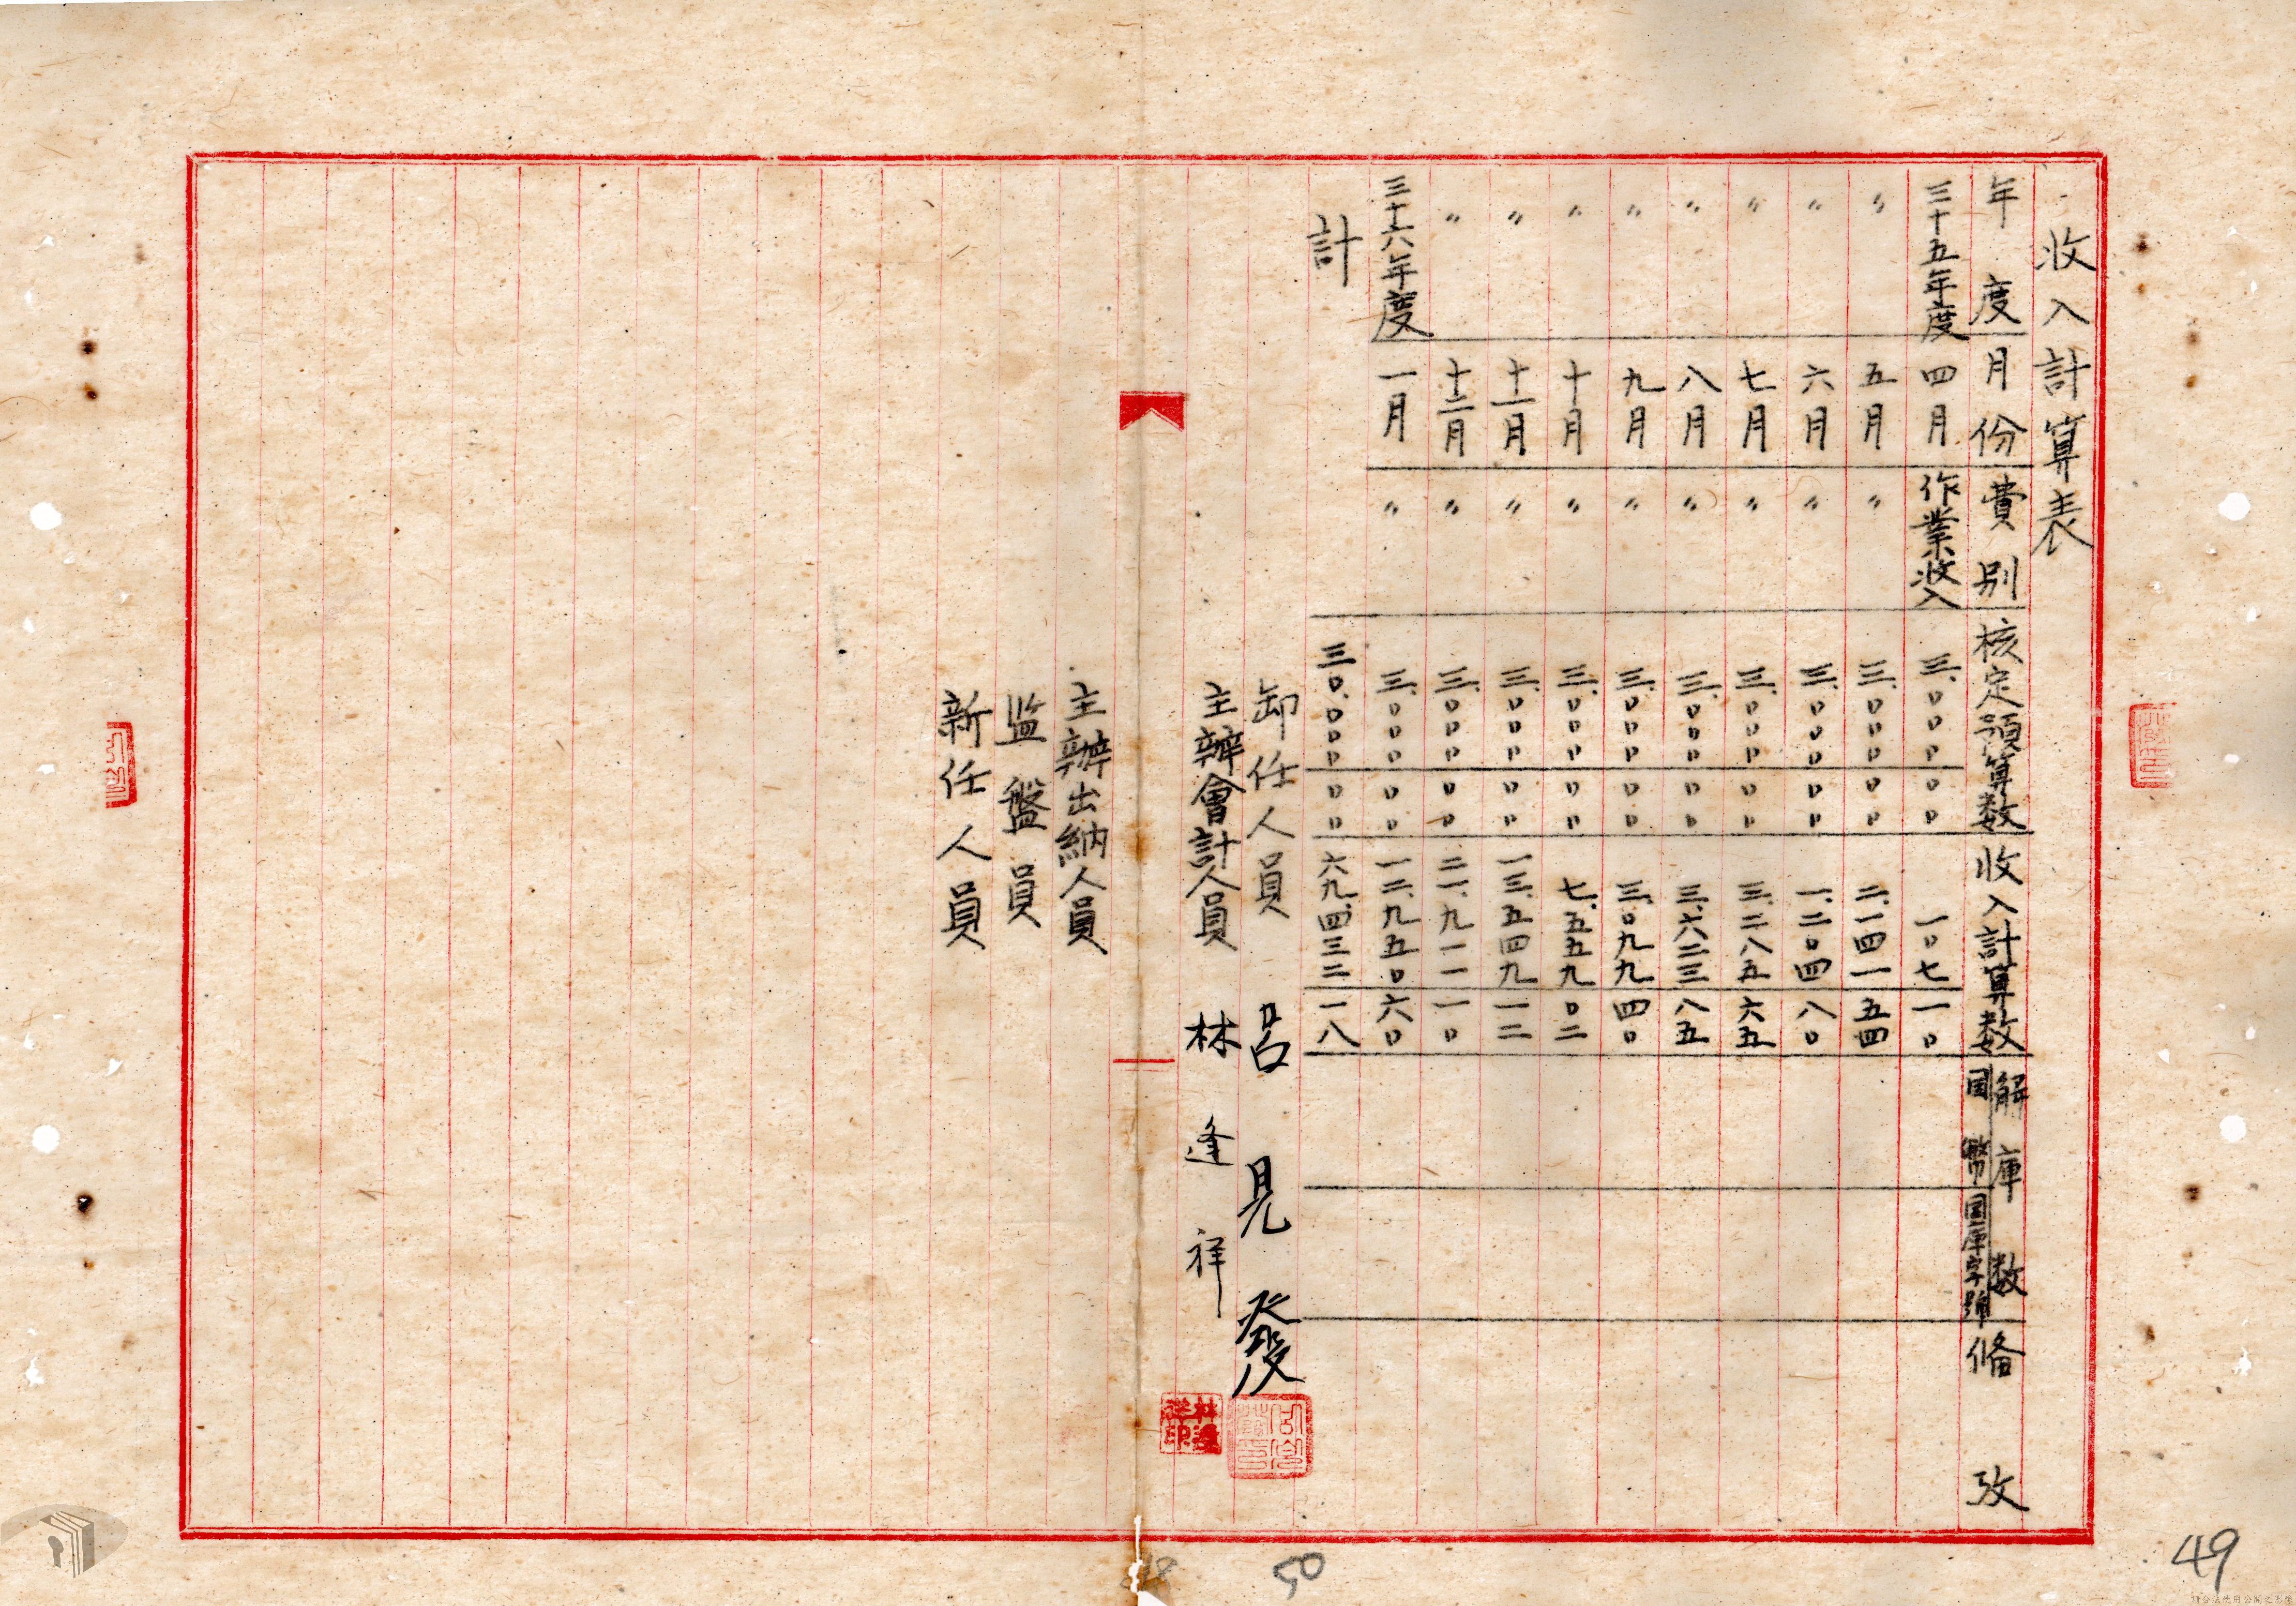 收入計算表
年度 月份 費別 核定預算数 收入計算数 解庫数 国幣 国庫字號 俻攷
三十五年度 四月 作業收入 三.〇〇〇〇〇 一〇七一〇
〃 五月 〃 三.〇〇〇〇〇 二.一四一五四
〃 六月 〃 三.〇〇〇〇〇 一.二〇四八〇
〃 七月 〃 三.〇〇〇〇〇 三.二八五六五
〃 八月 〃 三.〇〇〇〇〇 三.六二三八五
〃 九月 〃 三.〇〇〇〇〇 三.〇九九四〇
〃 十月 〃 三.〇〇〇〇〇 七.五五九〇二
〃 十一月 〃 三.〇〇〇〇〇 一三.五四九一二
〃 十二月 〃 三.〇〇〇〇〇 二一.九一一一〇
三十六年度 一月 〃 三.〇〇〇〇〇 一二.九五〇六〇
計 三〇.〇〇〇〇〇 六九.四三二一八
卸任人員 呂見發
主辦會計人員 林逢祥
主辦出納人員
监盤員
新任人員
50
49